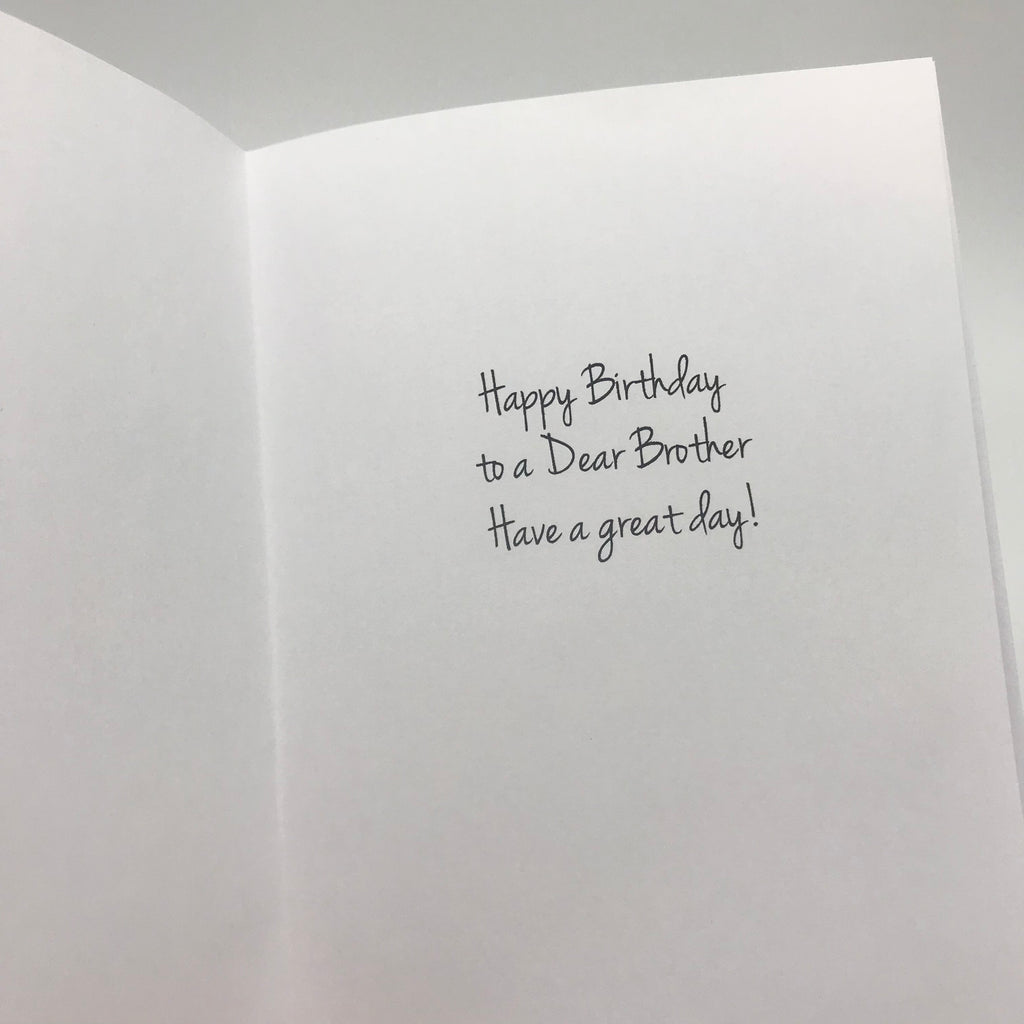 Happy Birthday
to a Dear Brother
Have a great day!